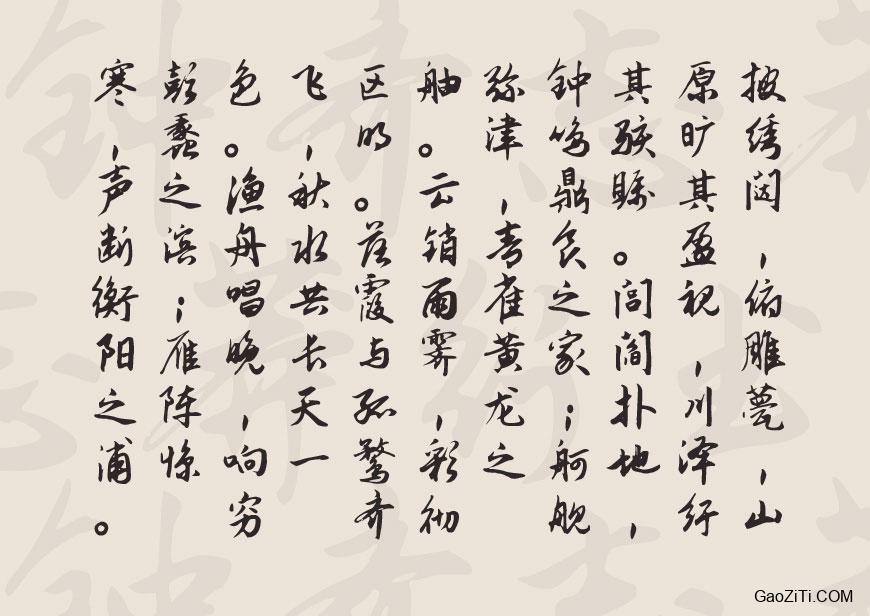 披绣闼，俯雕甍，山
原旷其盈视，川泽纡
其骇瞩。闾阎扑地，
钟鸣鼎食之家；舸舰
弥津，青雀黄龙之
舳。云销雨霁，彩彻
区明。落霞与孤鹜齐
飞，秋水共长天一
色。渔舟唱晚，响穷
彭蠡之滨；雁阵惊
寒，声断衡阳之浦。
GaoZiTi.COM